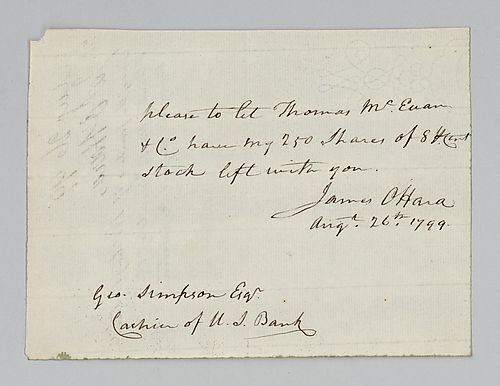 please to let Thomas Mc. Euan
& Co. have my 250 Shares of 8 ⅌ Cent
stock left with you.
James O'Hara
Augt. 26th. 1799.
Geo. Simpson Esqr.
Cashier of U. S. Bank